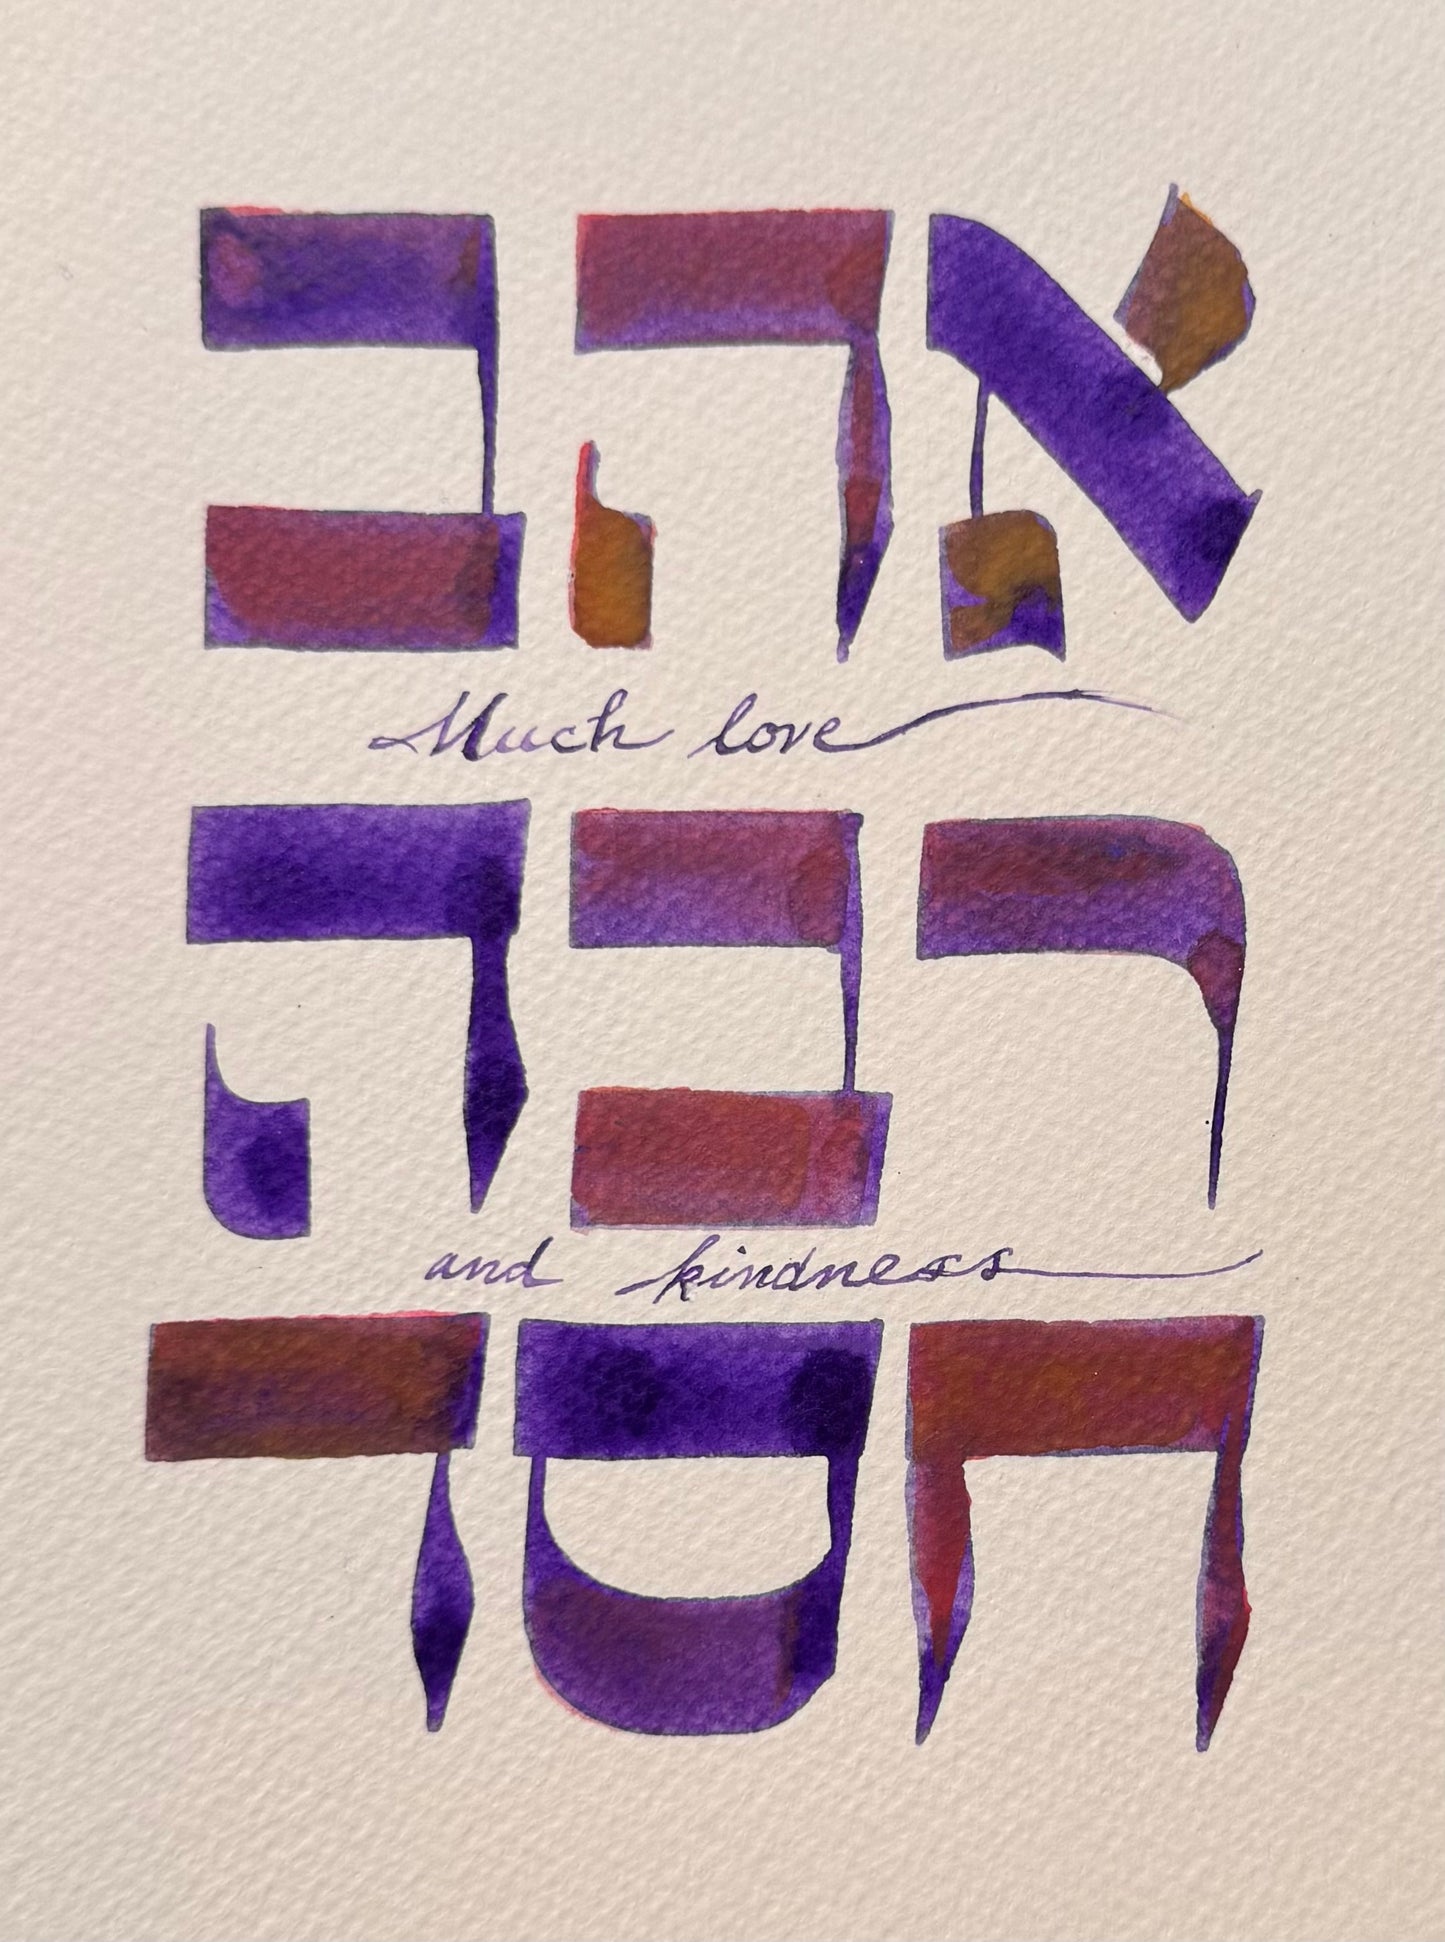 אהב
Much love
רבה
and kindness
חסד